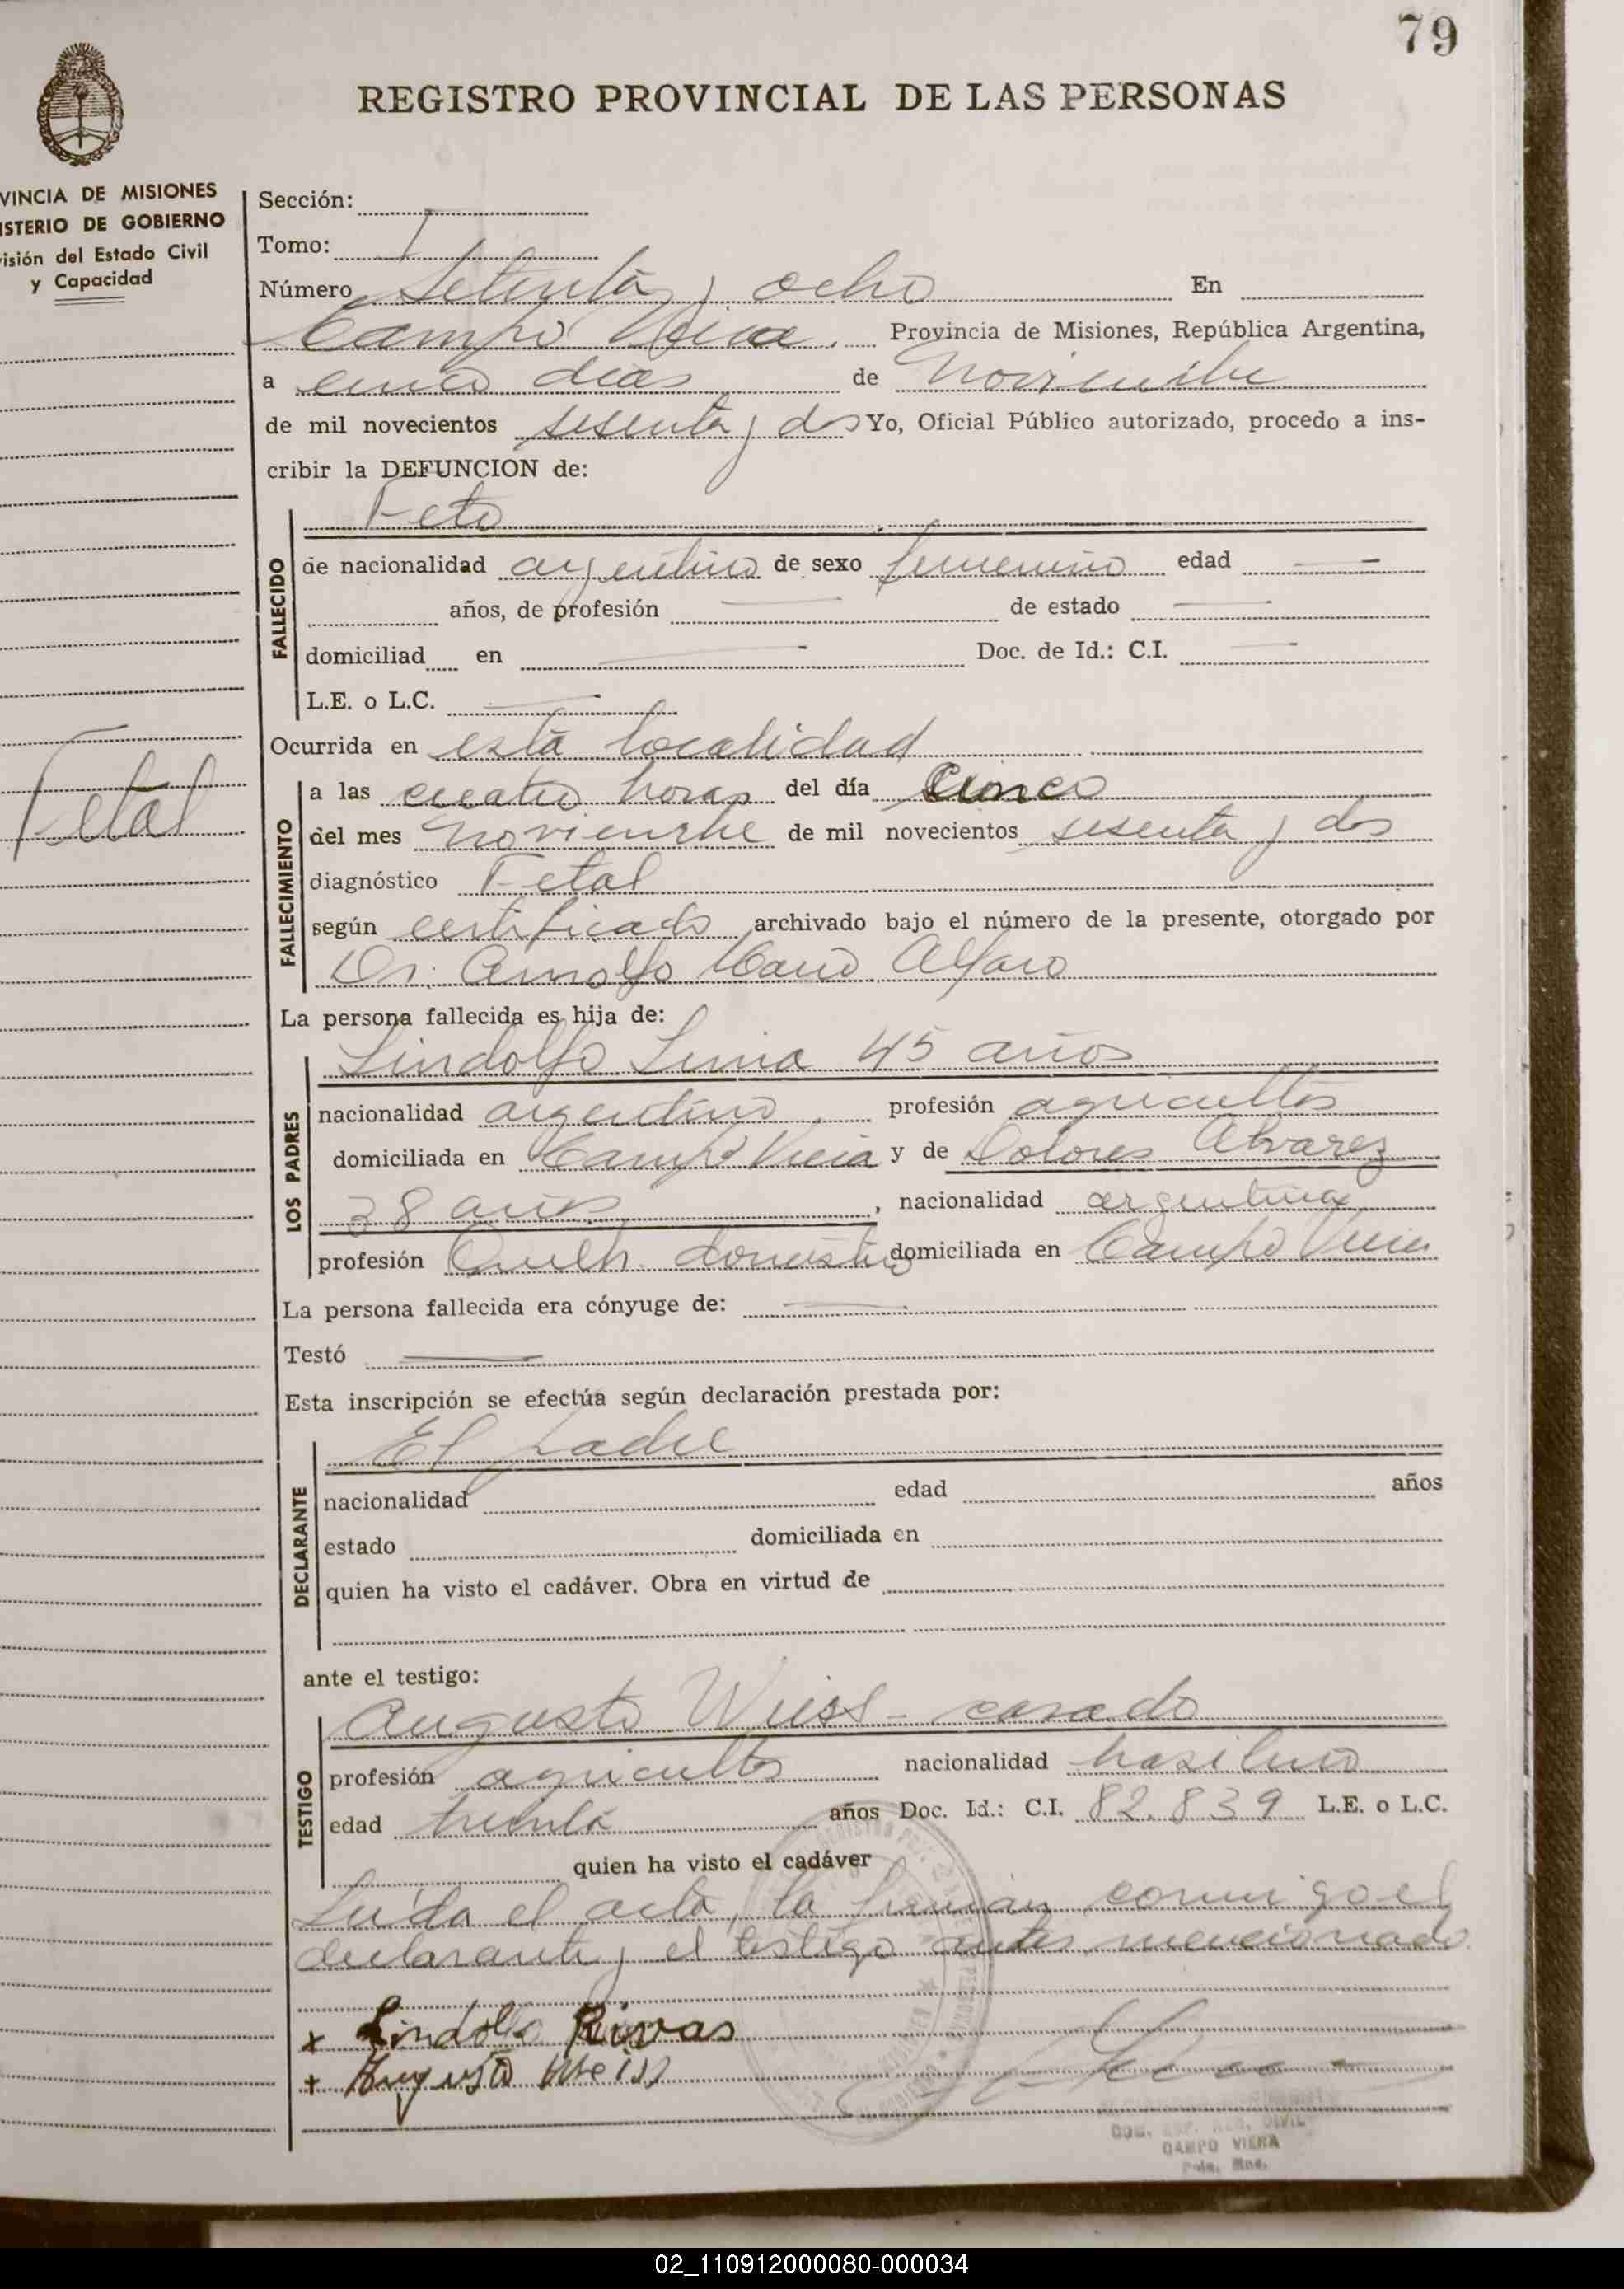 79
REGISTRO PROVINCIAL DE LAS PERSONAS
VINCIA DE MISIONES
ISTERIO DE GOBIERNO
isión del Estado Civil
y Capacidad
Sección:
Tomo: I
Número Setenta y ocho En
Campo Viera. Provincia de Misiones, República Argentina,
a cinco días de Noviembre
de mil novecientos sesenta y dos Yo, Oficial Público autorizado, procedo a ins-
cribir la DEFUNCION de:
Feto
FALLECIDO
de nacionalidad argentino de sexo femenino edad —
años, de profesión — de estado —
domiciliad en — Doc. de Id.: C.I. —
L.E. o L.C. —
Ocurrida en esta localidad
Fetal
FALLECIMIENTO
a las cuatro horas del día Cinco
del mes Noviembre de mil novecientos sesenta y dos
diagnóstico Fetal
según certificado archivado bajo el número de la presente, otorgado por
Dr. Arnolfo Alfaro
La persona fallecida es hija de:
Lindolfo 45 años
LOS PADRES
nacionalidad argentino profesión agricultor
domiciliada en Campo Viera y de Dolores Alvarez
38 años, nacionalidad argentina
profesión domiciliada en Campo Viera
La persona fallecida era cónyuge de: —
Testó —
Esta inscripción se efectúa según declaración prestada por:
El padre
DECLARANTE
nacionalidad edad años
estado domiciliada en
quien ha visto el cadáver. Obra en virtud de
ante el testigo:
Augusto Weiss - casado
TESTIGO
profesión agricultor nacionalidad brasilero
edad treinta años Doc. Id.: C.I. 82.839 L.E. o L.C.
quien ha visto el cadáver
Leída el acta, la firman conmigo el
declarante y el testigo antes mencionado
x Lindolfo Rivas
+ Augusto Weiss
CAMPO VIERA
02_110912000080-000034